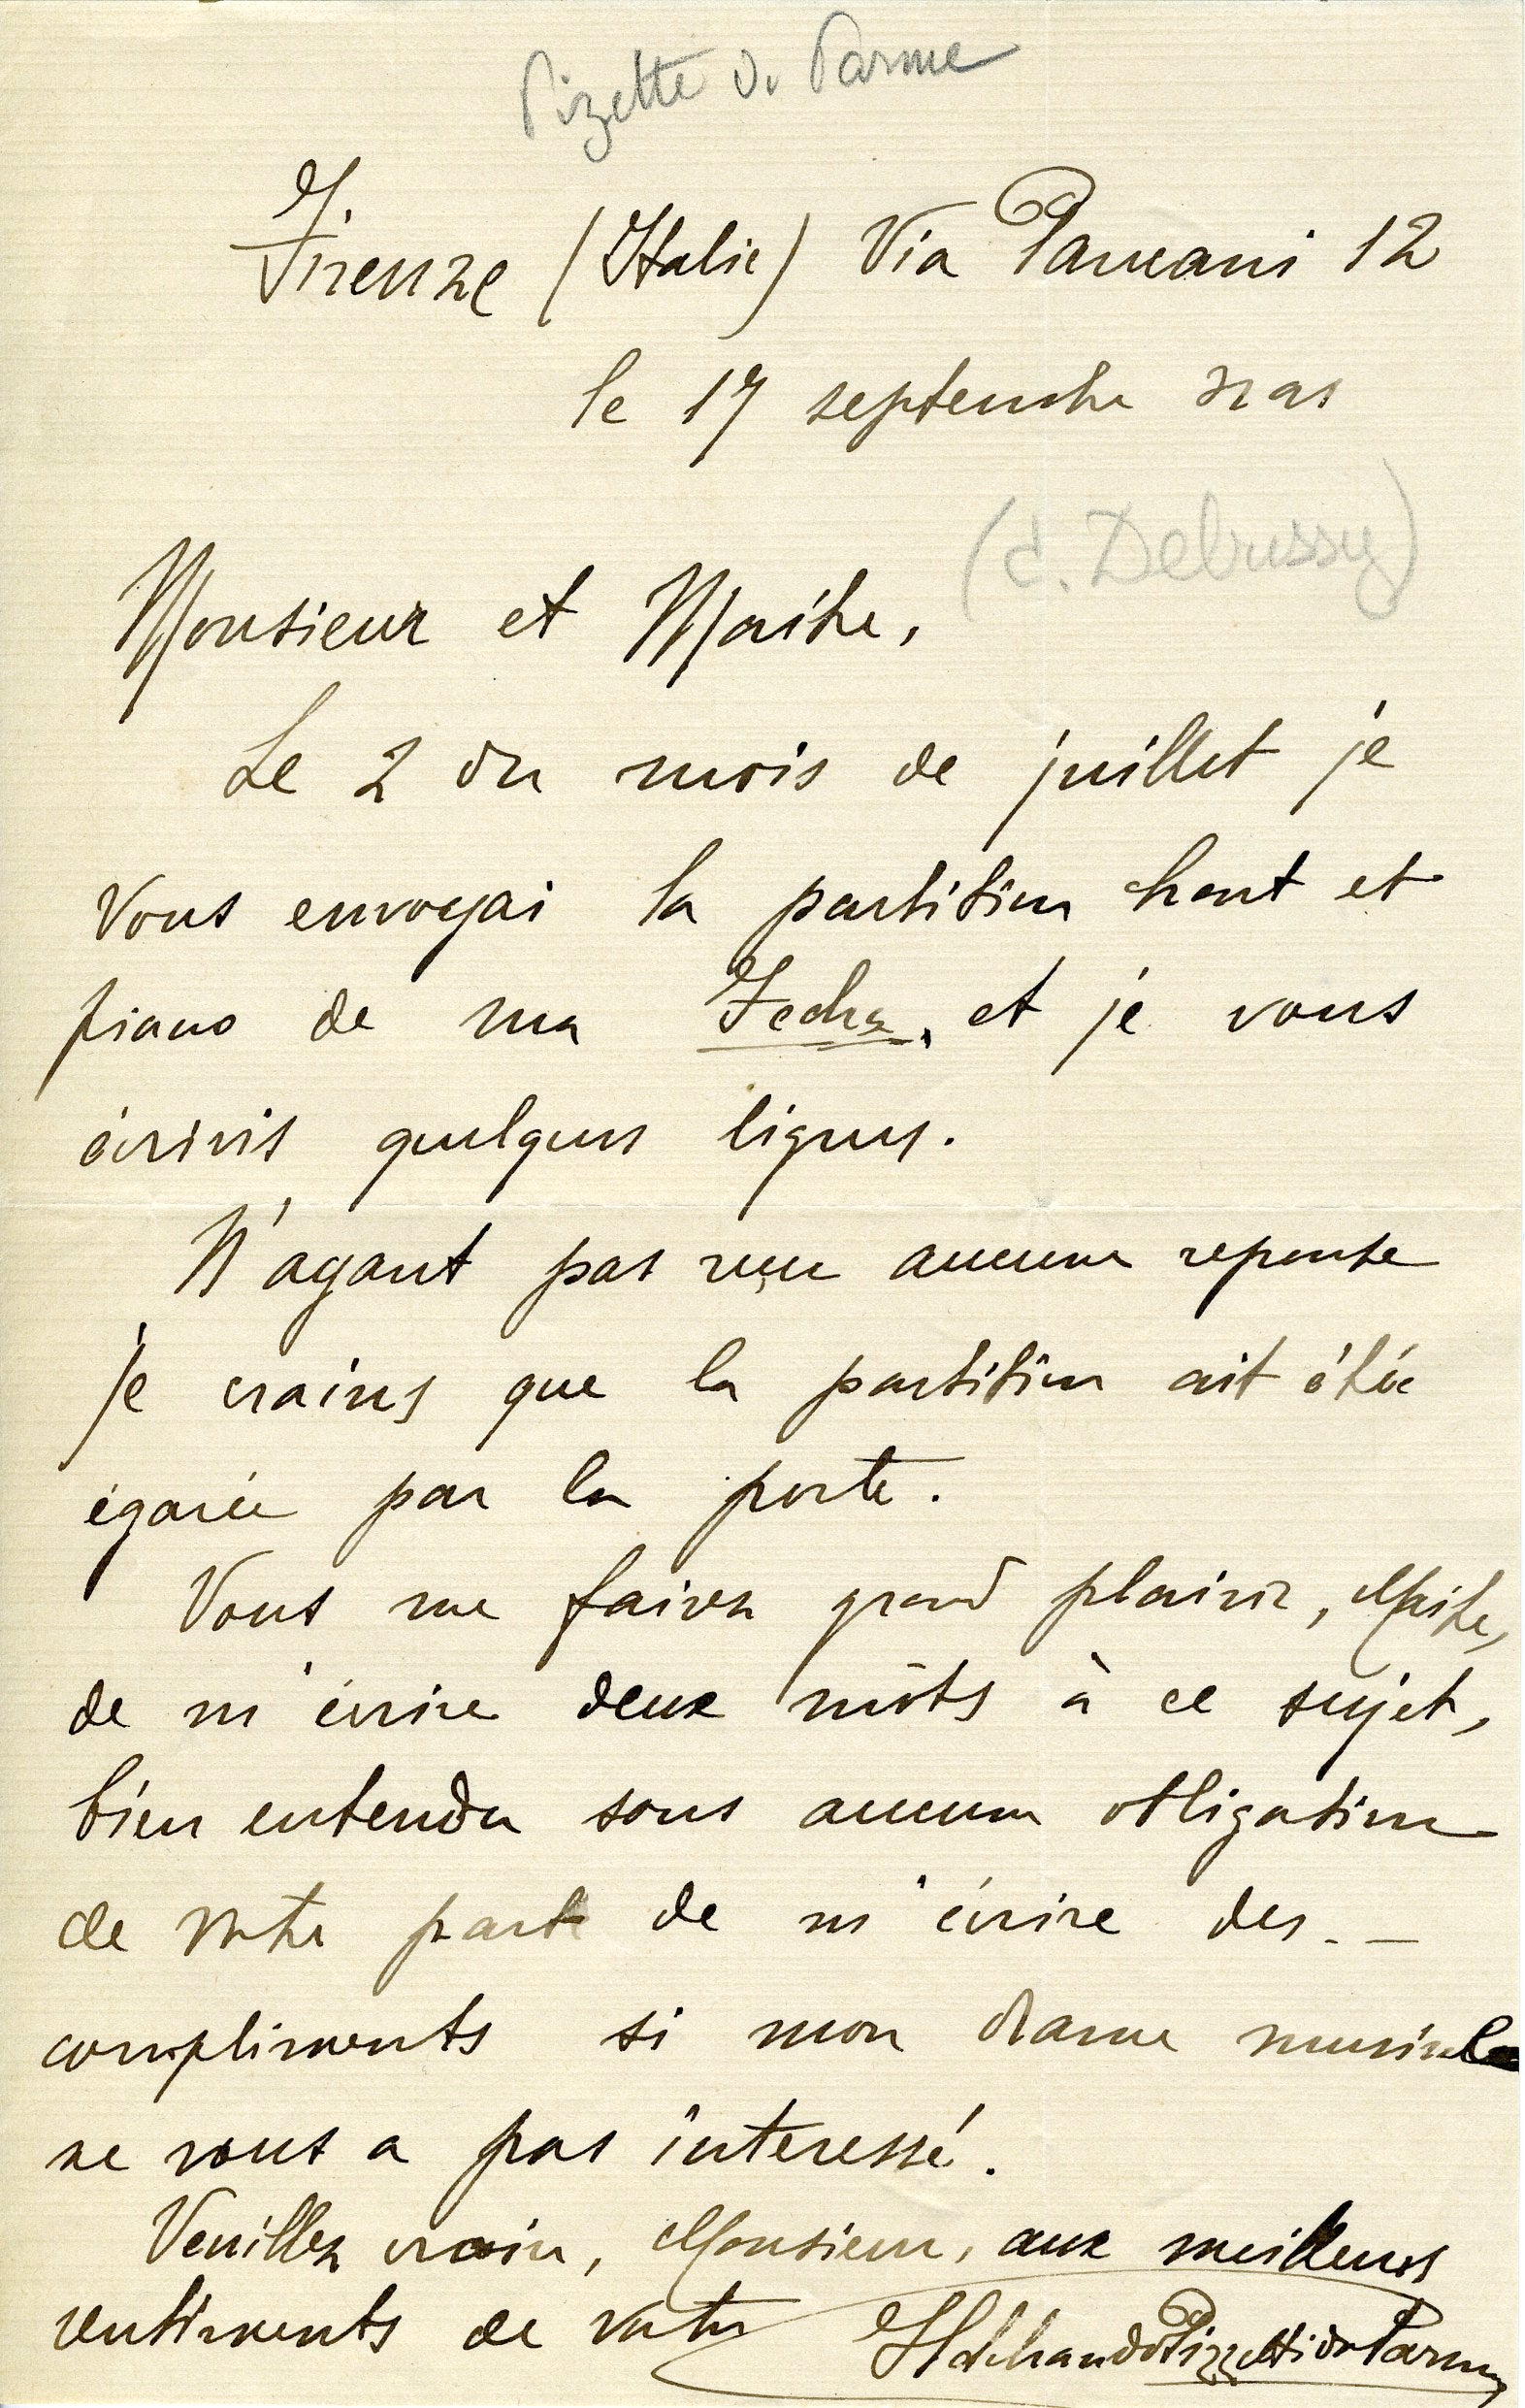 Pizette d. Parme
Firenze (Italie) Via Pancani 12
le 17 septembre
(C. Debussy)
Monsieur et Maître,
Le 2 du mois de juillet je
vous envoyai la partition chant et
piano de ma Fedra, et je vous
écrivis quelques lignes.
N'ayant pas reçu aucune reponse
je crains que la partition ait étée
égarée par la poste.
Vous me fairez grand plaisir, Maître,
de m'écrire deux mots à ce sujet,
bien entendu sans aucune obligation
de votre part de m'écrire des
compliments si mon drame musical
ne vous a pas interessé.
Veuillez croire, Monsieur, aux meilleurs
sentiments de votre Ildebrando Pizzetti da Parma